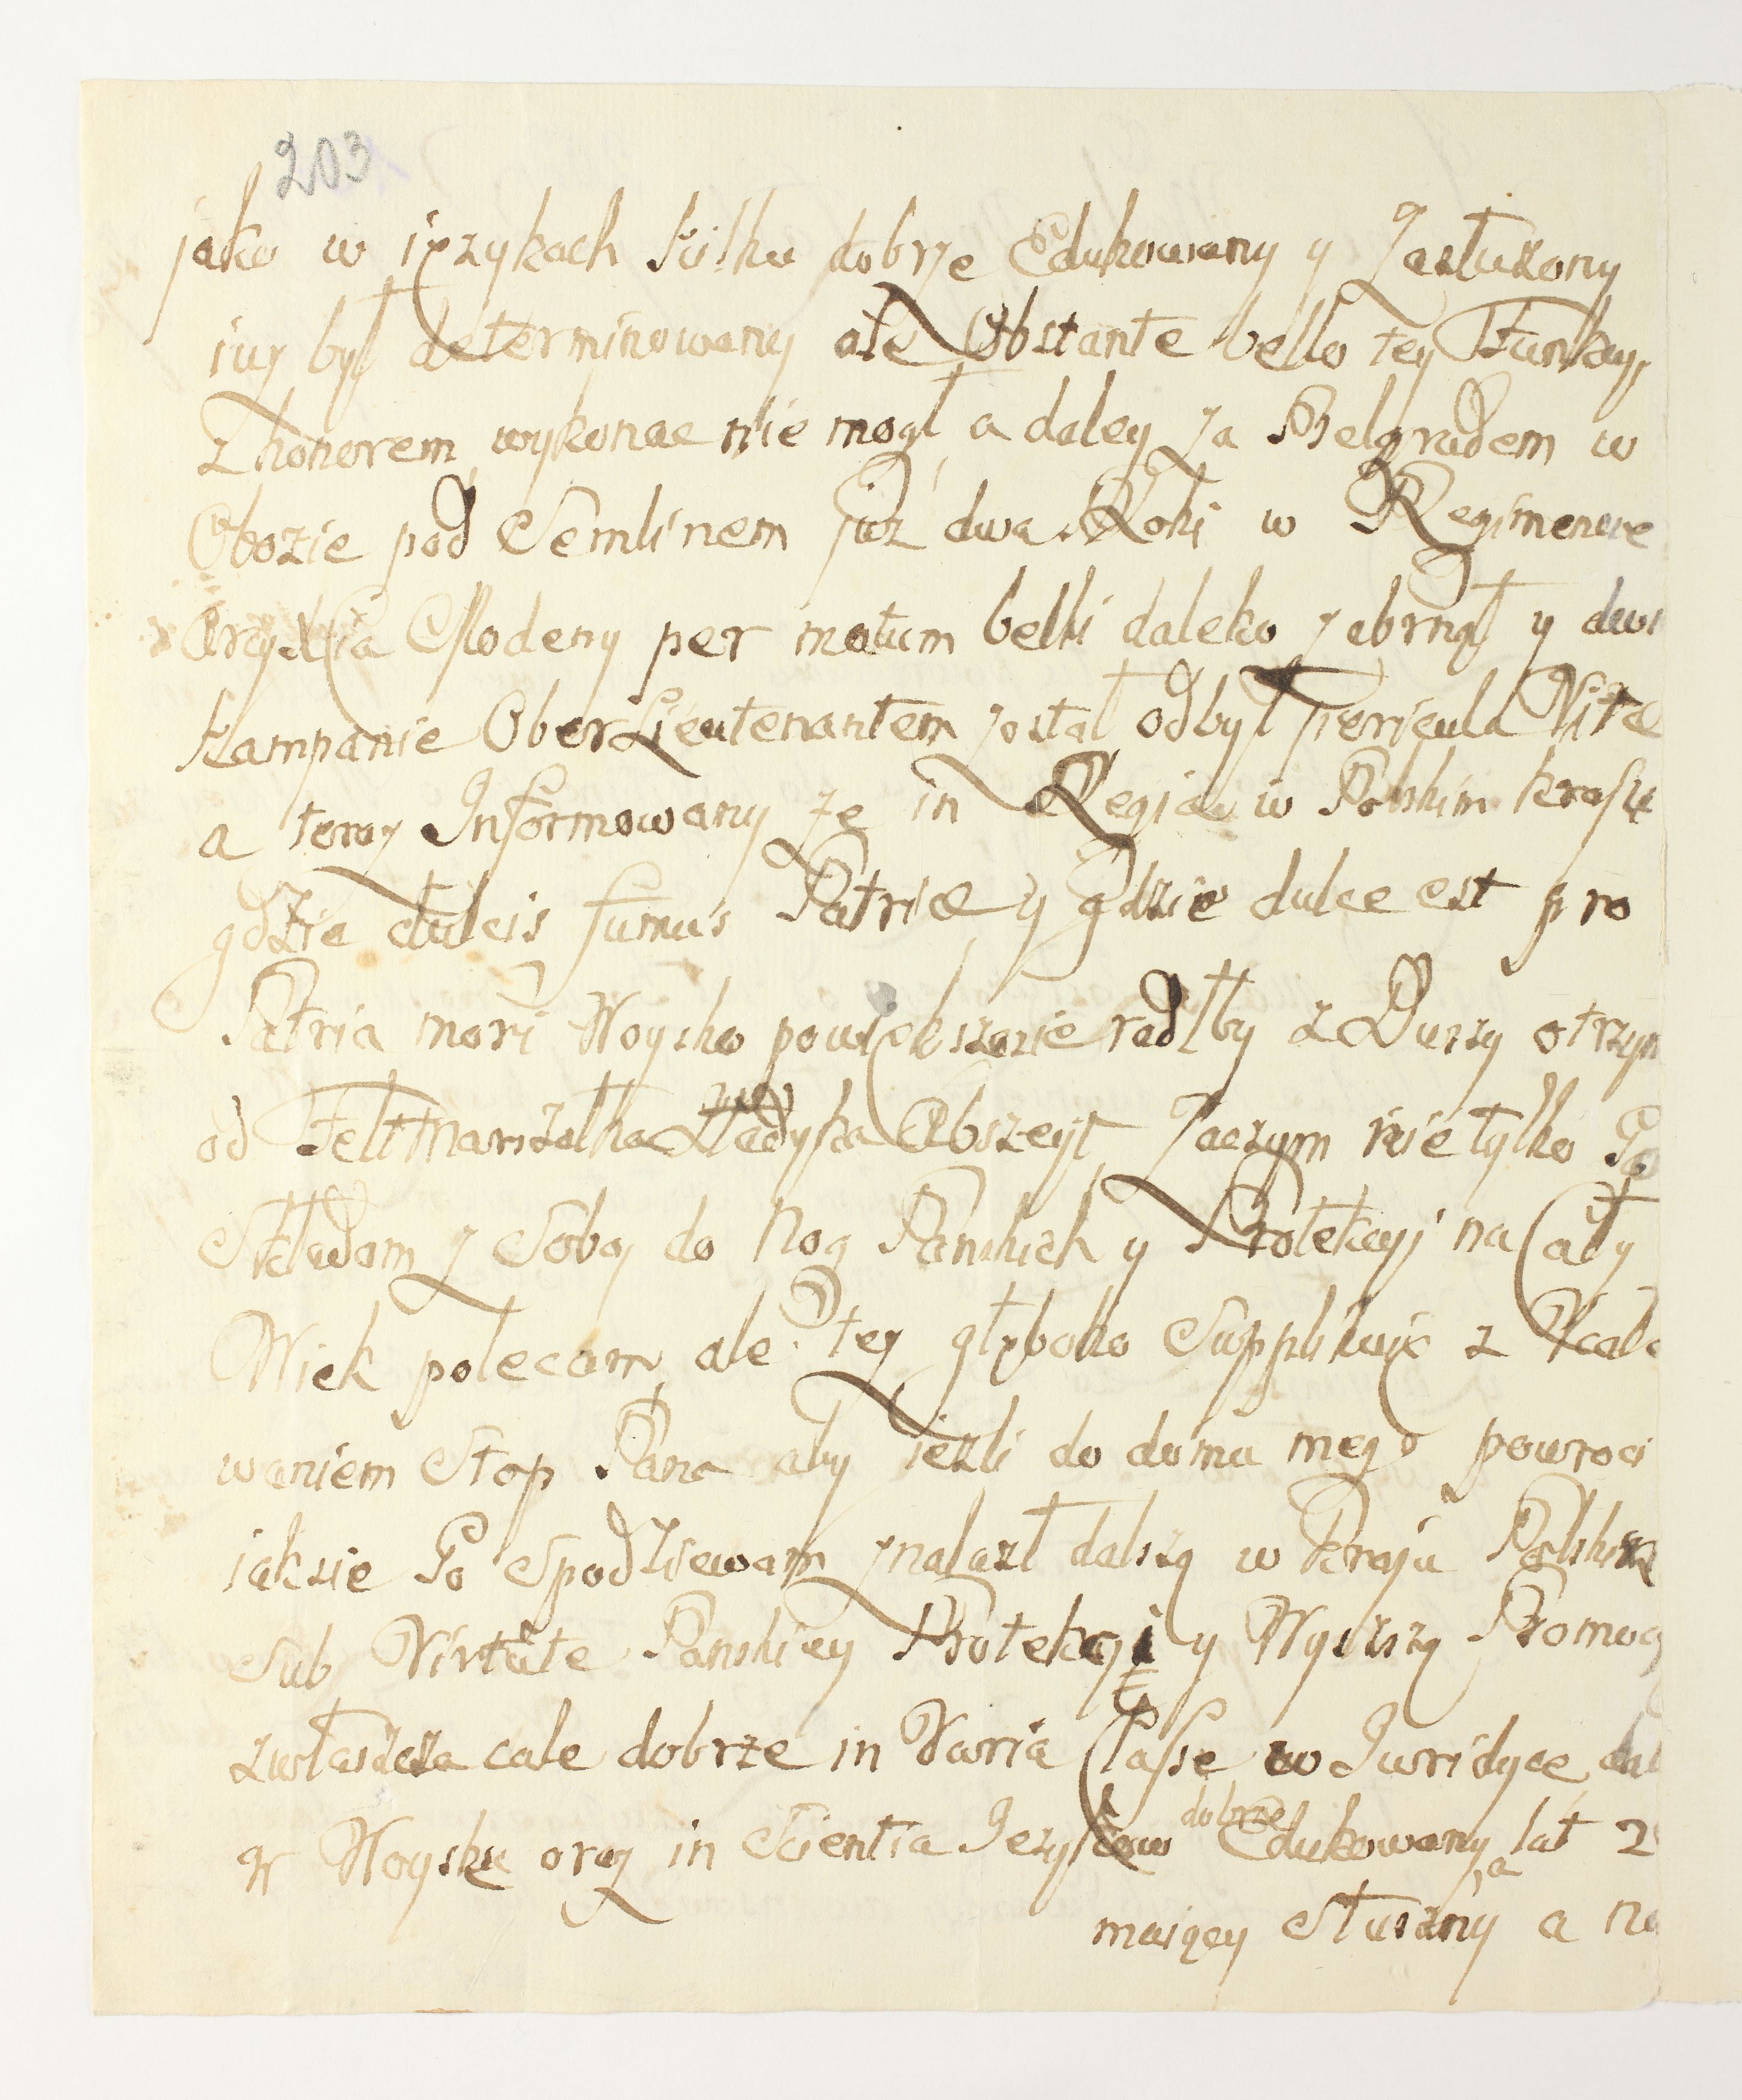 203
jako w ięzykach kilku dobrze Edukowany y Zasłużony
iuz był determinowany ale Obstante bello tey Funkcyi
z honorem wykonac nie mogł, a daley za Belgradem w
Obozie pod Semlinem juz dwa Roki w Regimencie
Modeny per motum belli daleko zabrnął y dwi
kampanie OberLieutenantem został odbył Pericula Vitæ
a teraz Informowany ze in Regia w Polskim kraju
gdzie dulcis fumus Patriæ y gdzie dulce est pro
Patria mori Woysko powiększacie radby z Duszy otrzym
od Feltmarszałka Abszeyt, Zaczym nie tylko Go
Składam z Sobą do Nog Panskich y Protekcyi na Cały
Wiek polecam, ale tez głęboko Supplikuię z Vcało
waniem Stop Pana aby iezli do domu mego powroci
iaksie Go Spodziewam znalazł dalszą w Kraju Polskim
Sub Virtute Panskiey Protekcyi y Wyższy Promocy
zwłaszcza cale dobrze in Varia Classe w Juridyce
w Woysku oraz in Scientia Jezykow dobrze Edukowany, lat 2
maiący Słuszny a a na